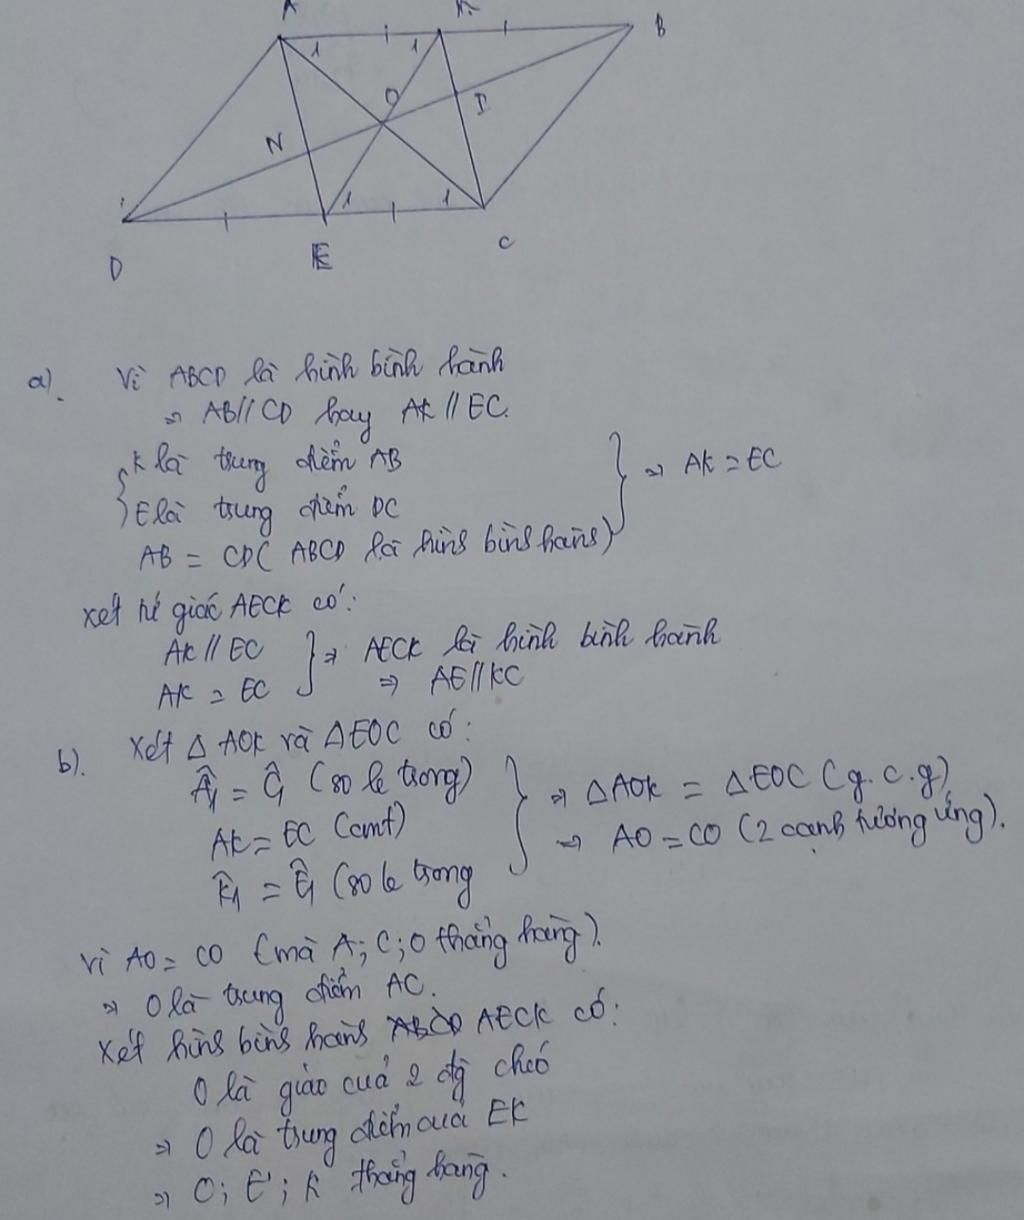 A K B
1 1
O
N I
1 1
D E C
a). Vì ABCD là hình bình hành
⇒ AB // CD hay AK // EC.
K là trung điểm AB
E là trung điểm DC
AB = CD ( ABCD là hình bình hành) ⇒ AK = EC
Xét tứ giác AECK có:
AK // EC
AK = EC ⇒ AECK là hình bình hành
⇒ AE // KC
b). Xét Δ AOK và Δ EOC có:
Â₁ = Ĉ₁ (so le trong)
AK = EC (cmt)
K̂₁ = Ê₁ (so le trong
⇒ Δ AOK = Δ EOC (g.c.g)
⇒ AO = CO (2 cạnh tương ứng).
Vì AO = CO (mà A; C; O thẳng hàng).
⇒ O là trung điểm AC.
Xét hình bình hành AECK có:
O là giao của 2 đg chéo
⇒ O là trung điểm của EK
⇒ O; E; K thẳng hàng.